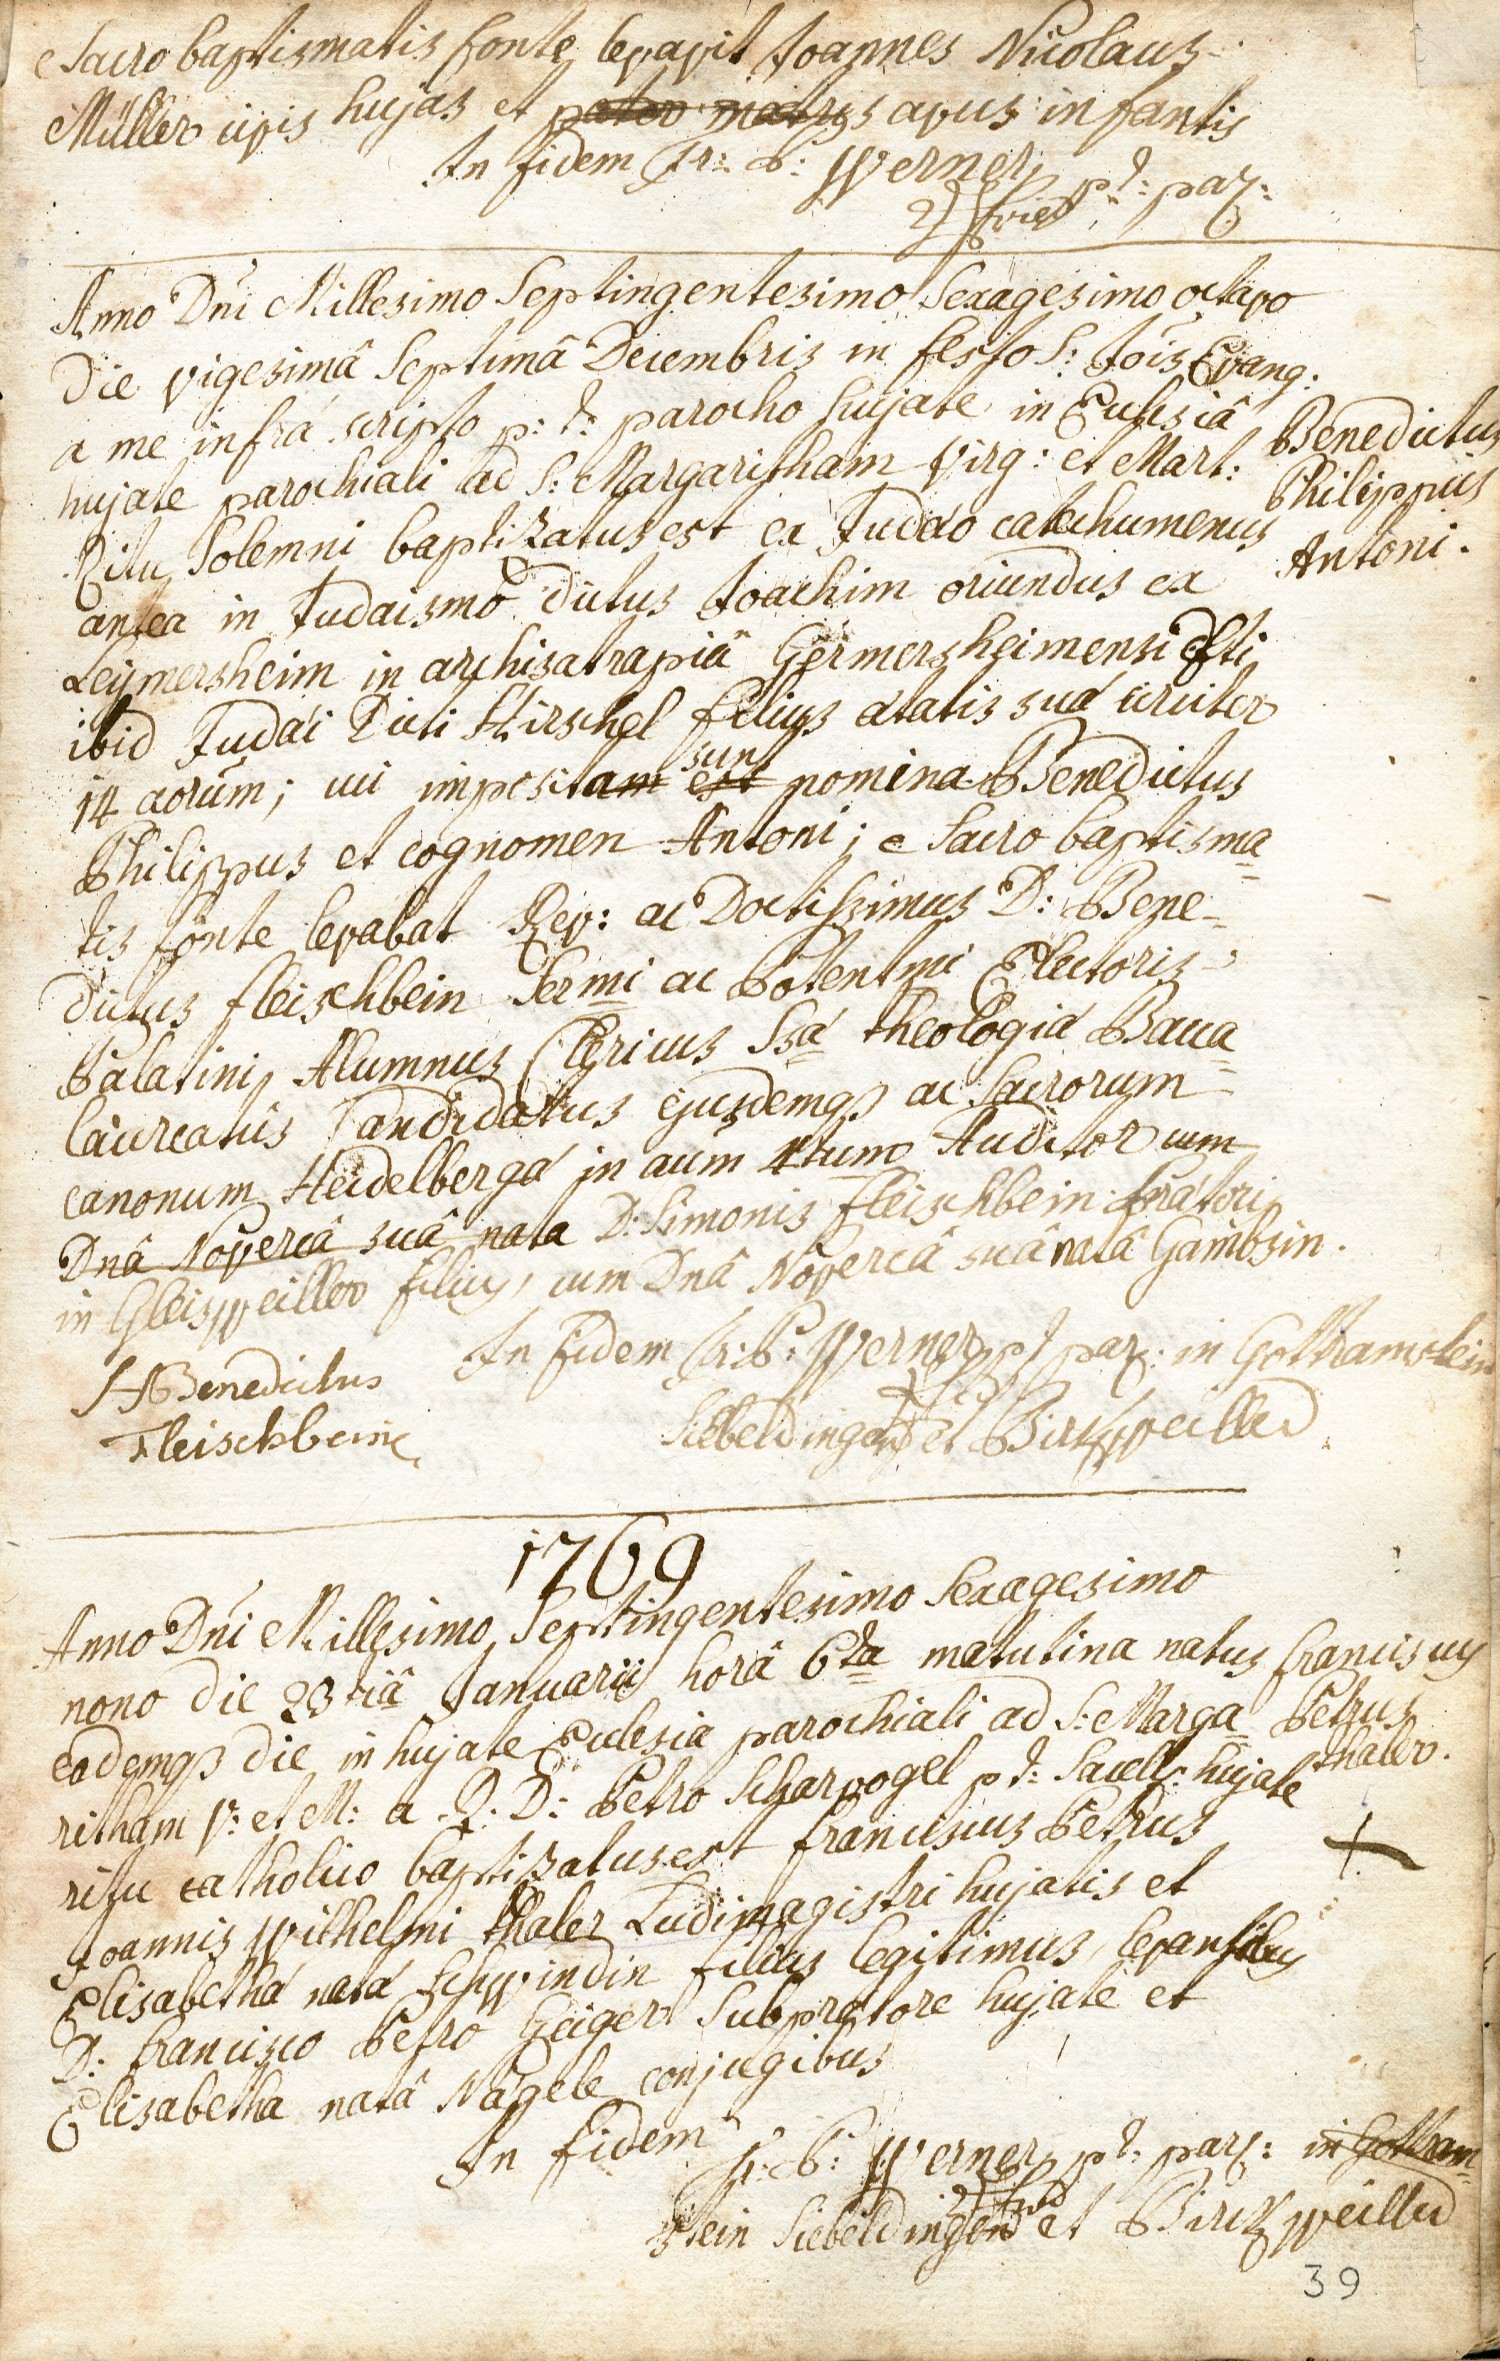 e Sacro baptismatis fonte levavit Joannes Nicolaus
Müller civis hujas et pater matris avus infantis
In fidem Fr: B: Werner
pt: par:
Anno Dni Millesimo Septingentesimo Sexagesimo octavo
Die vigesimâ Septimâ Decembris in festo S: Jois Evang:
a me infra scripto p: t: parocho hujate in Ecclesiâ
hujate parochiali ad S: Margaritham Virg: et Mart:
Ritu Solemni baptizatus est ex Judæo catechumenus
antea in Judaismo dictus Joachim oriundus ex
Leymersheim in archisatrapiâ Germersheimensi dfti
ibid Judæi Dicti Hirschel filius ætatis suæ circiter
14 aorum; cui impositam est sunt nomina Benedictus
Philippus et cognomen Antoni; e Sacro baptisma
tis fonte levabat Rev: ac Doctissimus D: Bene-
dictus fleischbein Sermi ac Potentmi Electoris
Palatini Alumnus Clericus SSæ theologiæ Bacca
laureatus Candidatus ejusdemq3 ac Sacrorum
canonum Heidelbergæ in aum 4tum Auditor cum
Dnâ Novercâ suâ nata D: Simonis fleischbein
in Gleisweiller filius, cum Dnâ Novercâ suâ natâ Gambsin.
In fidem fr: B: Werner pt par: in Gottramstein
Siebeldingen et Birkweiller
Benedictus
Fleischbein
Benedictus
Philippus
Antoni.
1769
Anno Dni Millesimo Septingentesimo Sexagesimo
nono die 23tiâ Januarii horâ 6ta matutina natus
eodemq3 die in hujate Ecclesia parochiali ad S: Marga
ritham V: et M: a R: D: Petro Scharvogel pt: Sacell: hujate
ritu catholico baptizatus est franciscus Petrus
Joannis Wilhelmi thaler Ludimagistri hujatis et
Elisabethæ natæ Schwindin filius legitimus, levantibus
D: francisco Petro Geiger Subprætore hujate et
Elisabetha natâ Nägele conjugibus
franciscus
Petrus
thaler.
In fidem fr: B: Werner pt: par: in Gottram
stein Siebeldingen et Birckweiller
39